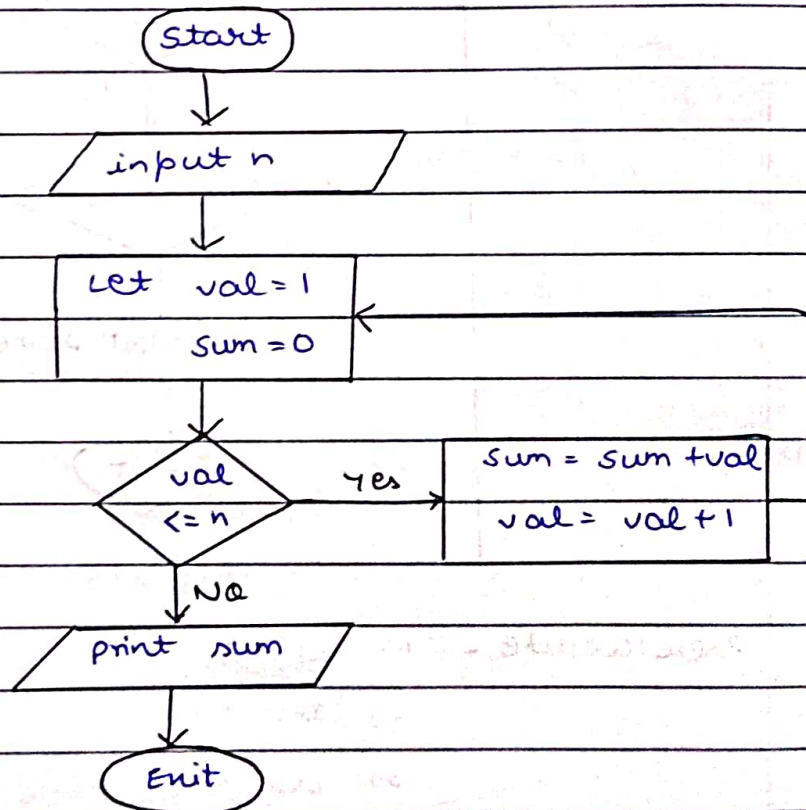 Start
input n
Let val = 1
sum = 0
val
<= n
Yes
sum = sum + val
val = val + 1
No
print sum
Exit